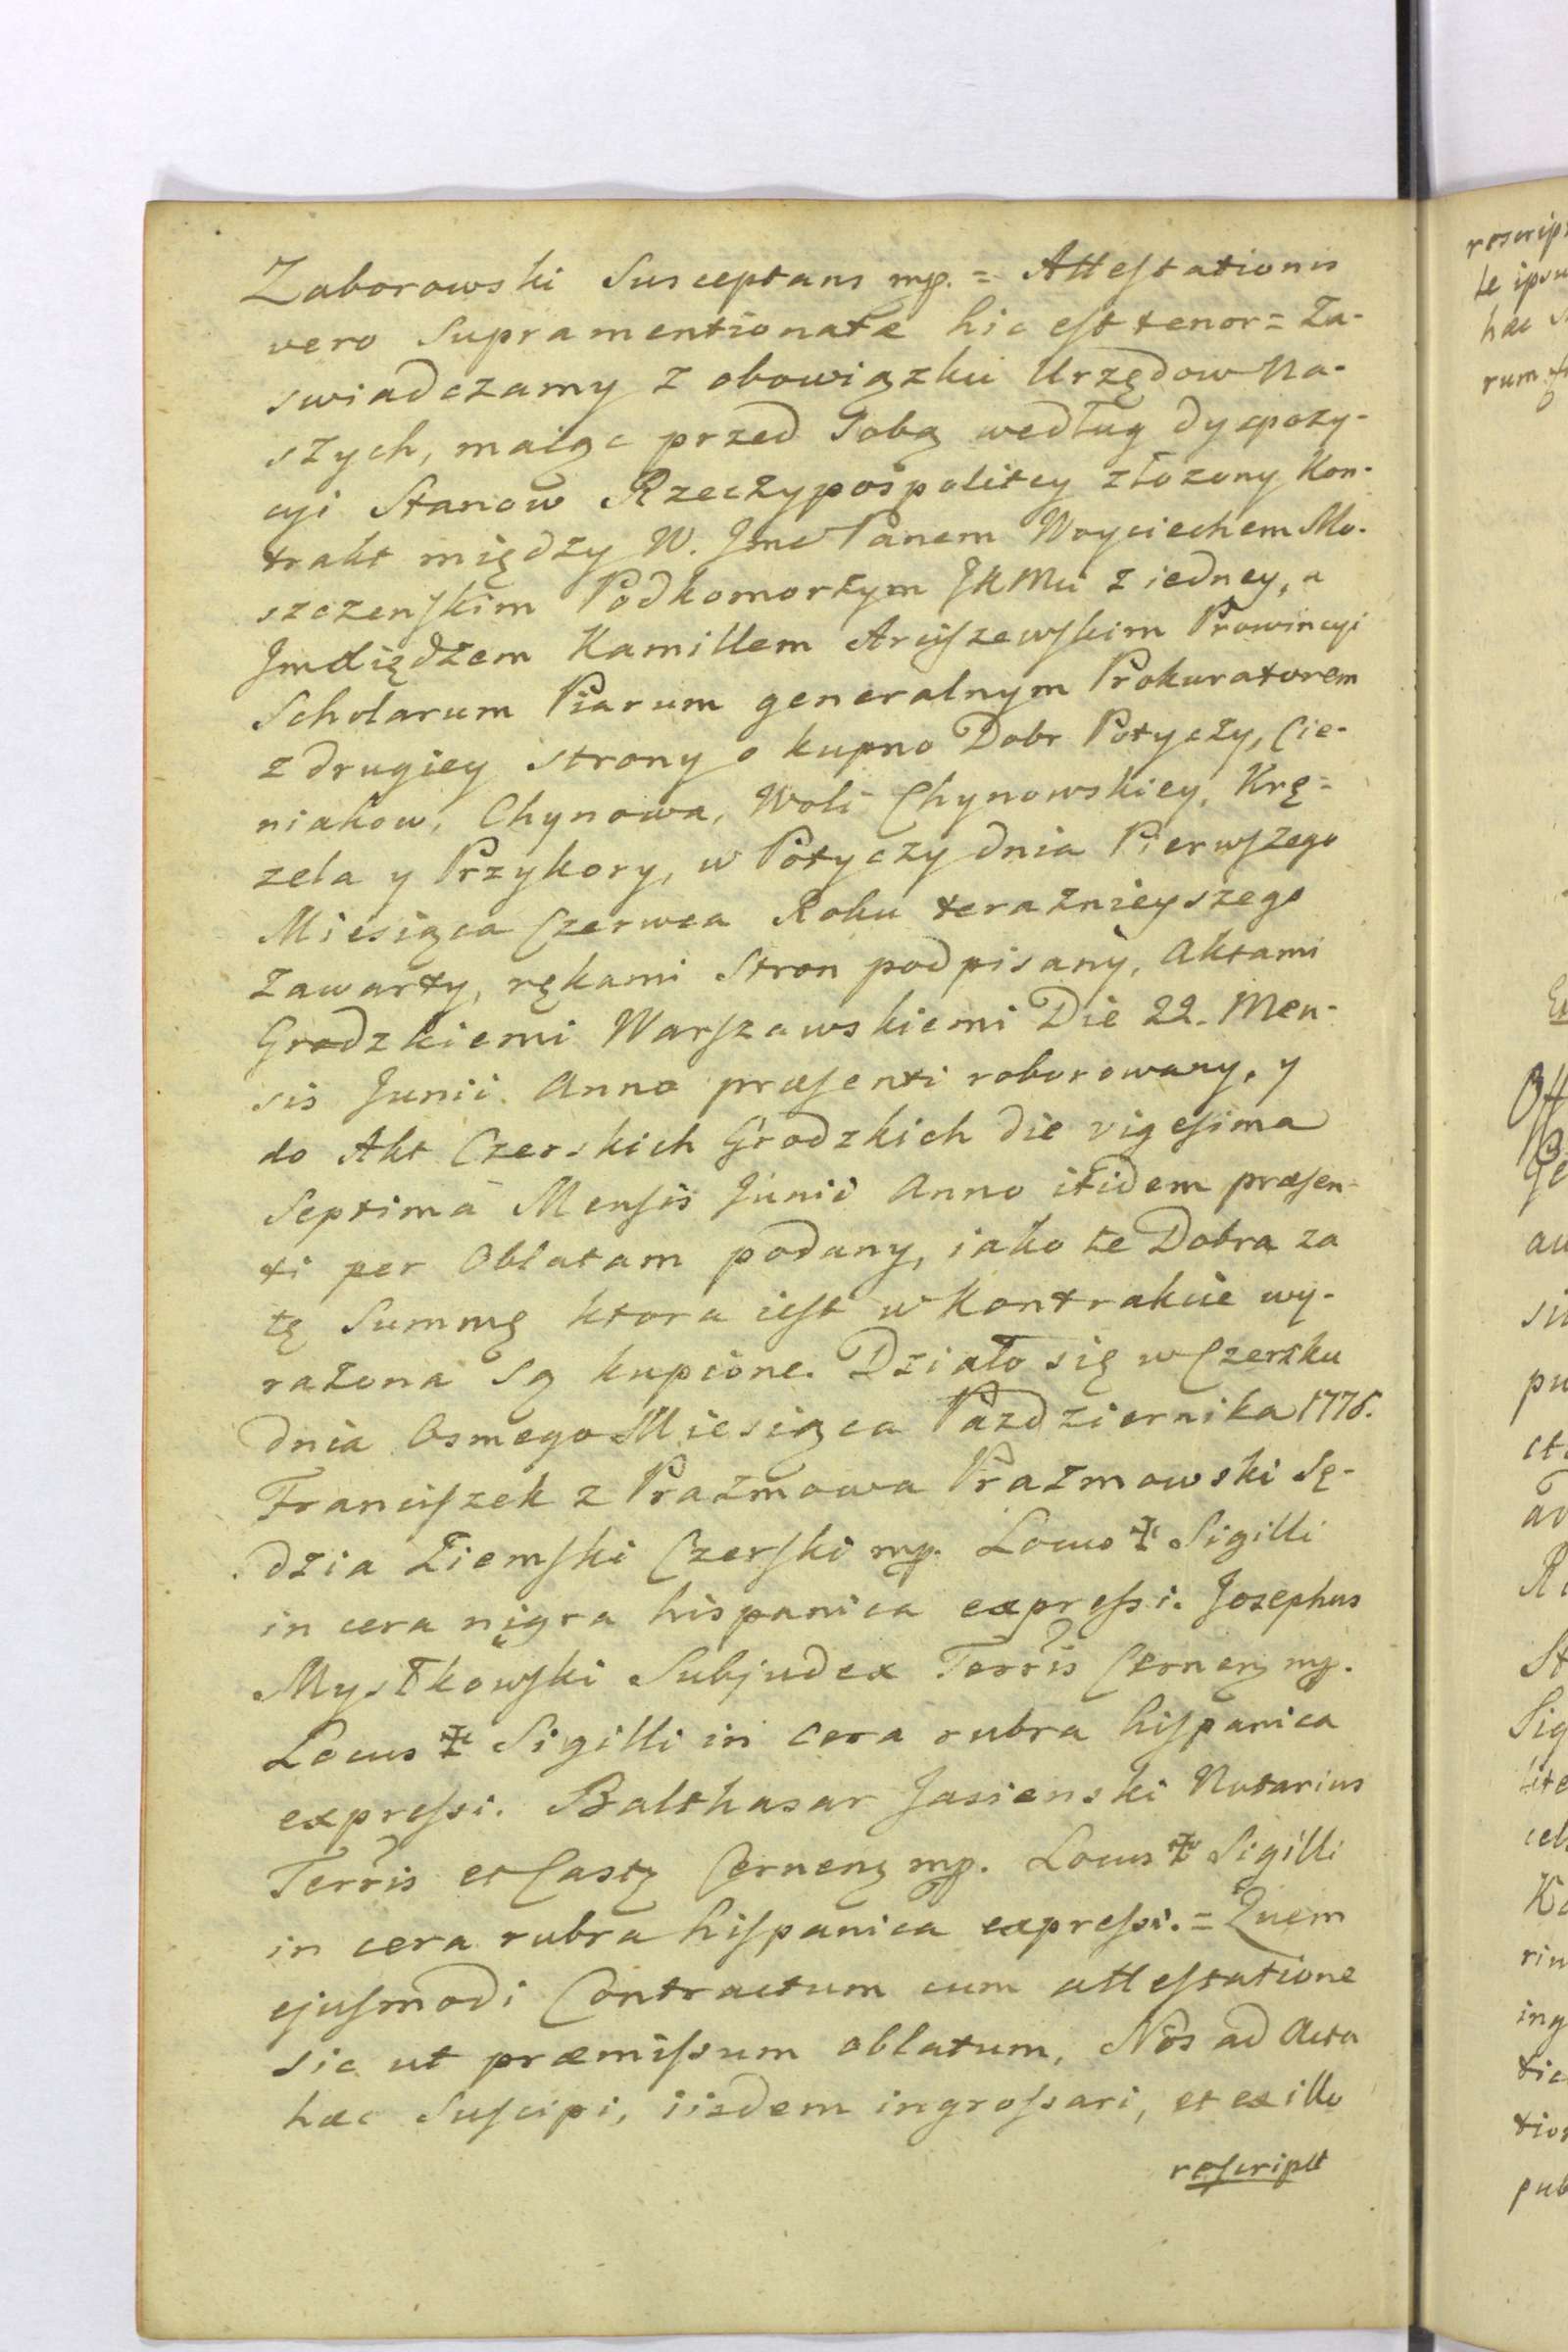 Zaborowski Susceptans mp. = Attestationis
vero Supramentionatæ hic est tenor = Za-
swiadczamy z obowiązku Urzędow Na-
szych, maiąc przed Sobą według dyspozy-
cyi Stanow Rzeczypospolitey złozony Kon-
trakt między W. Jmc Panem Woyciechem Mo-
szczenskim Podkomorzym JKMci z iedney, a
Jmcxiędzem Kamillem Arciszewskim Prowincyi
Scholarum Piarum generalnym Prokuratorem
z drugiey strony o kupno Dobr Potyczy, Cie-
niakow, Chynowa, Woli Chynowskiey, Krę-
zela y Przykory, w Potyczy dnia Pierwszego
Miesiąca Czerwca Roku teraznieyszego
zawarty, rękami Stron podpisany, Aktami
Grodzkiemi Warszawskiemi Die 22. Men-
sis Junii Anno præsenti roborowany, y
do Akt Czerskich Grodzkich die vigesima
Septima Mensis Junii Anno itidem præsen-
ti per Oblatam podany, iako te Dobra za
tę Summę ktora iest w Kontrakcie wy-
rażona Są kupione. Działo się w Czersku
dnia Osmego Miesiąca Pazdziernika 1776.
Franciszek z Prażmowa Prażmowski Sę-
dzia Ziemski Czerski mp. Locus ✠ Sigilli
in cera nigra hispanica expressi. Josephus
Mystkowski Subjudex Terris Cernen mp.
Locus ✠ Sigilli in cera rubra hispanica
expressi. Balthasar Jasienski Notarius
Terris et Castr Cernen mp. Locus ✠ Sigilli
in cera rubra hispanica expressi. = Quem
ejusmodi Contractum cum attestatione
sic ut præmissum oblatum, Nos ad Acta
hæc Suscipi, iisdem ingrossari, et ex illo
rescript